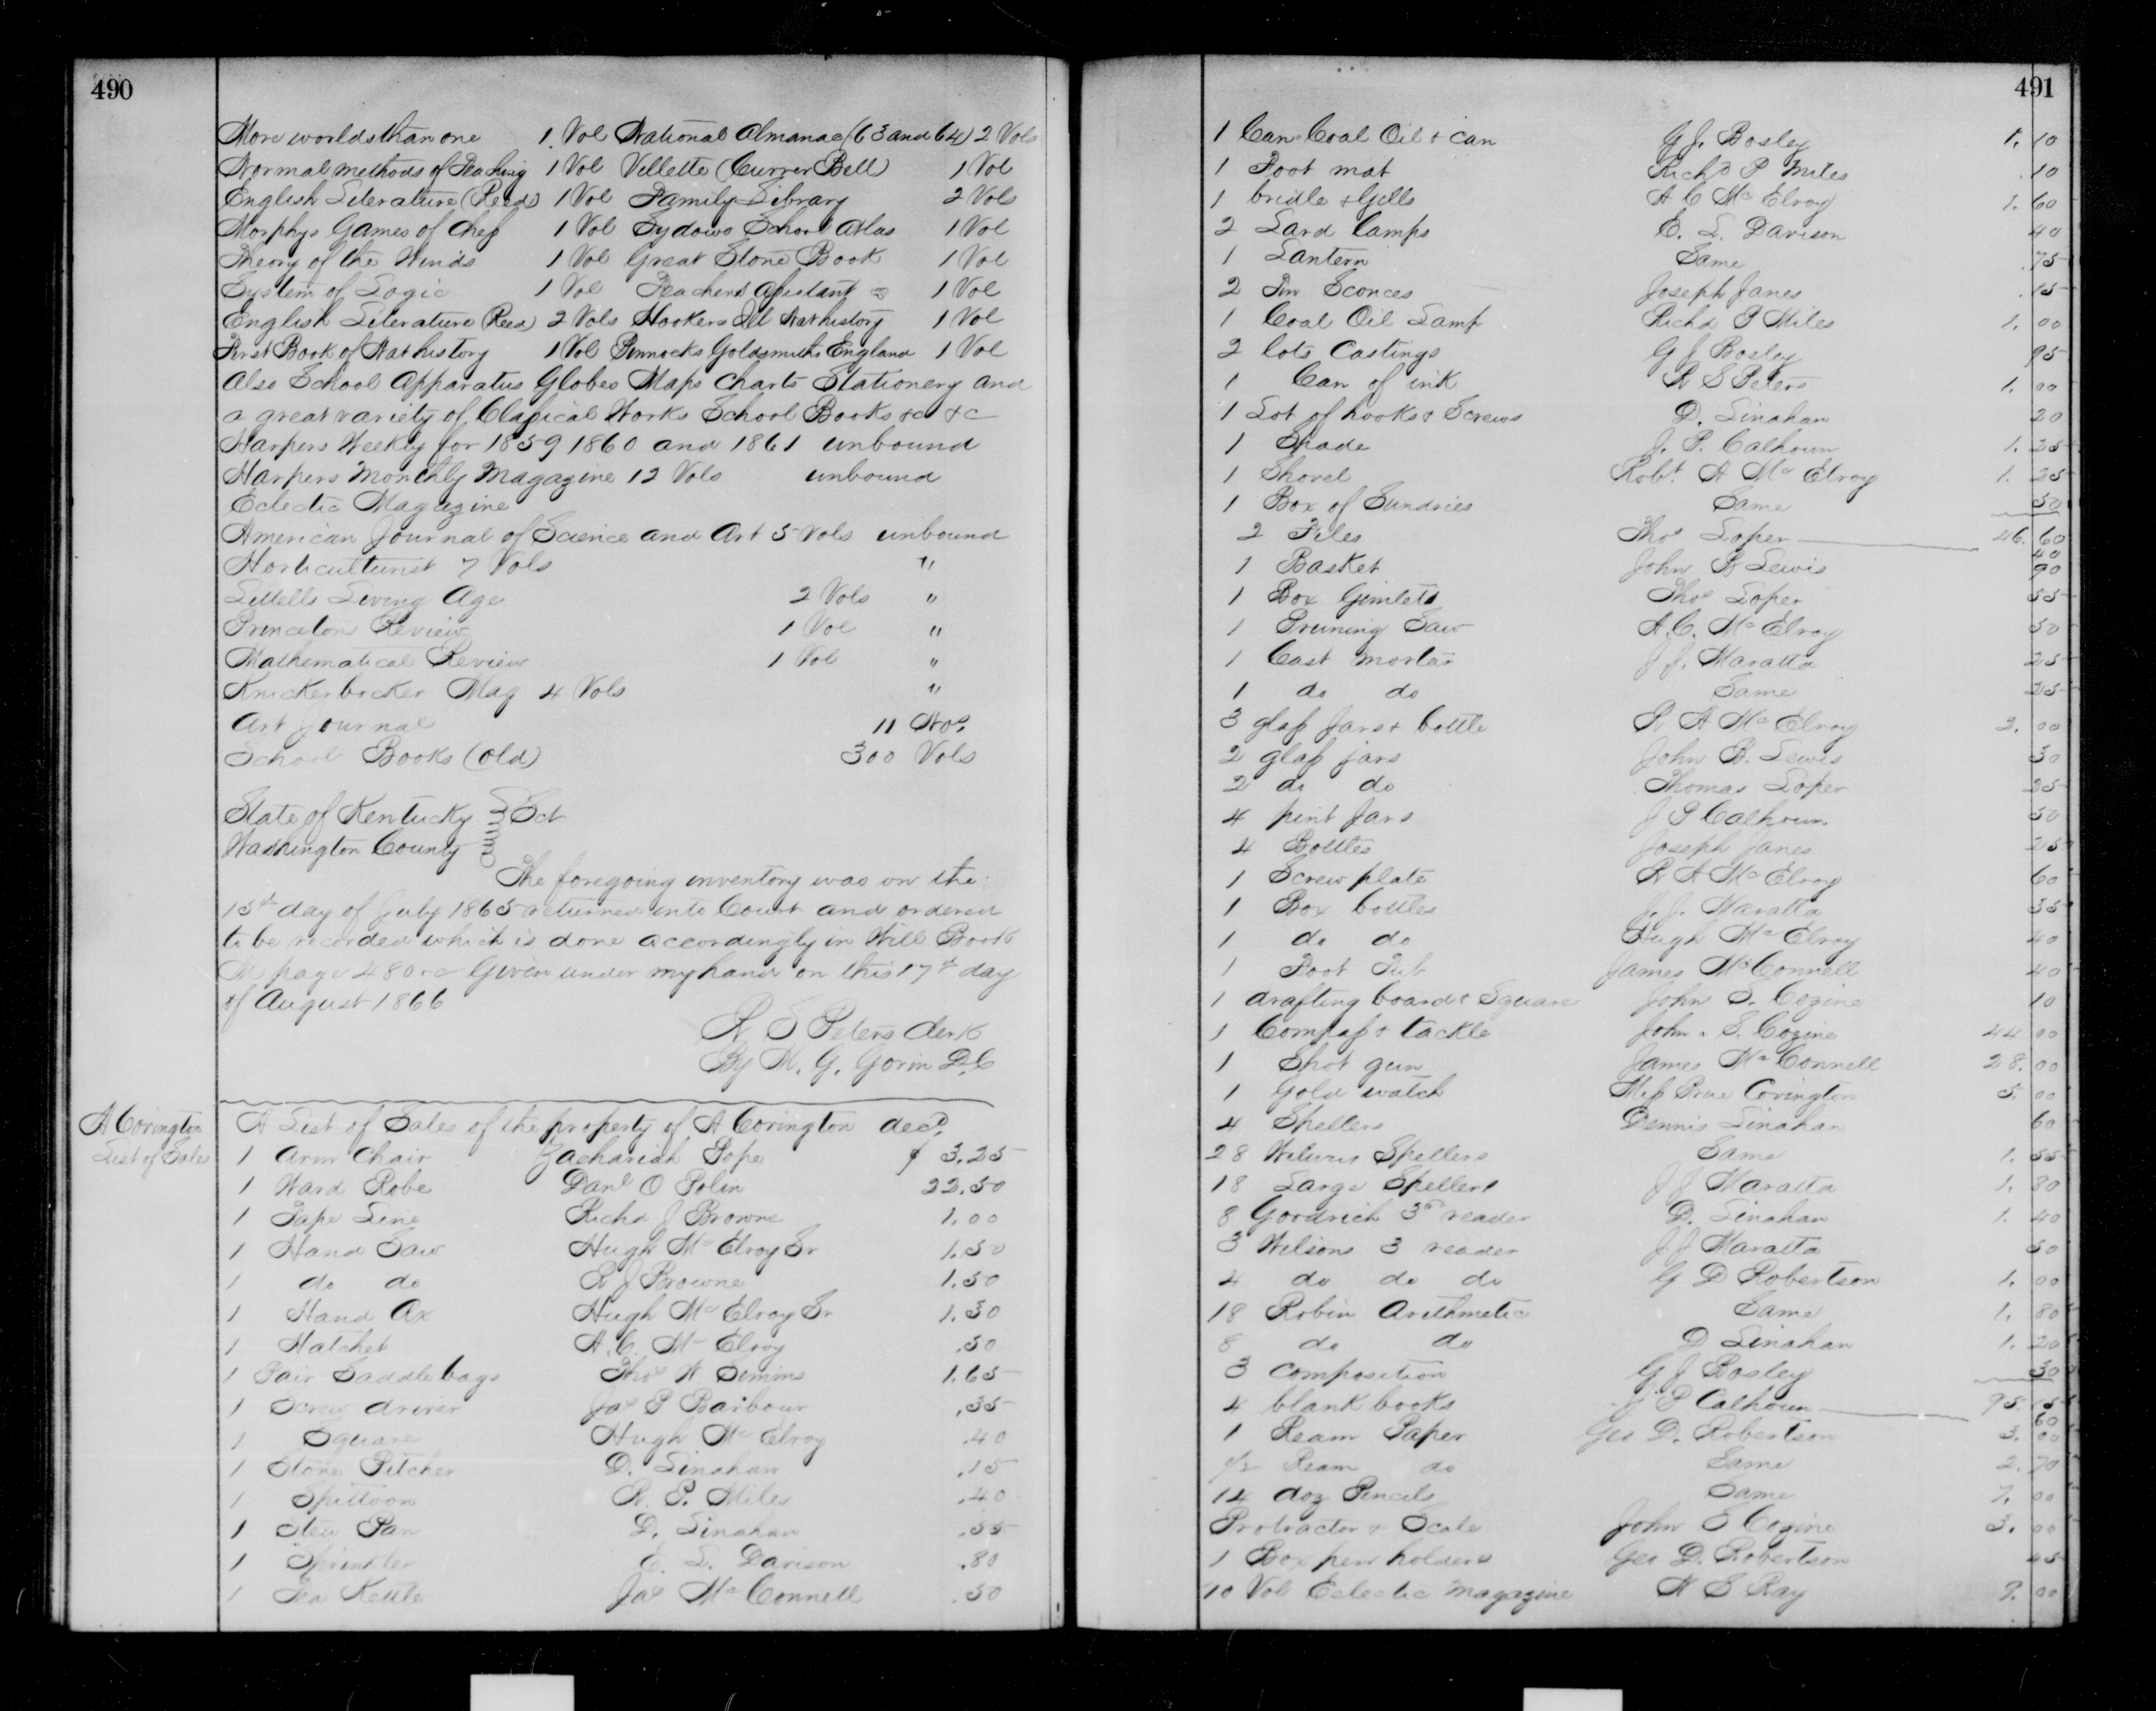 490
More worlds than one 1. Vol National Almanac (63 and 64) 2 Vols
Normal methods of Teaching 1 Vol Villette (Currer Bell) 1 Vol
English Literature (Reeds) 1 Vol Family Library 2 Vols
Morphys Games of Chess 1 Vol Sydows School Atlas 1 Vol
Theory of the Winds 1 Vol Great Stone Book 1 Vol
System of Logic 1 Vol Teachers Assistant 1 Vol
English Literature (Reed) 2 Vols Hookers Ill Nat history 1 Vol
First Book of Nat history 1 Vol Pinnocks Goldsmiths England 1 Vol
Also School Apparatus Globes Maps Charts Stationery and
a great variety of Classical Works School Books &c &c
Harpers Weekly for 1859 1860 and 1861 unbound
Harpers Monthly Magazine 12 Vols unbound
Eclectic Magazine
American Journal of Science and Art 5 Vols unbound
Horticulturist 7 Vols "
Littells Living Age 2 Vols "
Princeton Review 1 Vol "
Mathematical Review 1 Vol "
Knickerbocker Mag 4 Vols "
Art Journal 11 Nos
School Books (Old) 300 Vols
State of Kentucky } Sct
Washington County
The foregoing inventory was on the
15th day of July 1865 returned into Court and ordered
to be recorded which is done accordingly in Will Book
M page 480 &c Given under my hand on this 17th day
of August 1866
R S Peters Clerk
By M. G. Gorin D.C
A Covington
List of Sales
A List of Sales of the property of A Covington decd.
1 Arm Chair Zachariah Pope $ 3.25
1 Ward Robe Danl O Polin 22.50
1 Tape Line Richd J Browne 1.00
1 Hand Saw Hugh McElroy Sr 1.50
1 do do R J Browne 1.50
1 Hand Ax Hugh McElroy Sr 1.30
1 Hatchet A. C. McElroy .50
1 Pair Saddle bags Thos W Simms 1.65
1 Screw driver Jas P Barbour .35
1 Square Hugh McElroy .40
1 Stone Pitcher D. Linahan .15
1 Spittoon R. P. Miles .40
1 Stew Pan D. Linahan .55
1 Sprinkler E. L. Davison .80
1 Tea Kettle Jas McConnell .50
491
1 Can Coal Oil & can G J. Bosley 1.10
1 Foot mat Richd P Miles .10
1 bridle & Gills A C McElroy 1.60
2 Lard Lamps E. L. Davison 40
1 Lantern Same .75
2 Tin Sconces Joseph Janes .15
1 Coal Oil Lamp Richd P Miles 1.00
2 lots Castings G J Bosley 95
1 Can of ink R S Peters 1.00
1 Lot of hooks & Screws D. Linahan 20
1 Spade J. P. Calhoun 1.25
1 Shovel Robt. A McElroy 1.25
1 Box of Sundries Same 50
2 Files Thos Loper 46.60 40
1 Basket John B Lewis 90
1 Box Gimlets Thos Loper 55
1 Pruning Saw A. C. McElroy 50
1 Cast mortar J J. Maratta 25
1 do do Same 25
3 glass Jars & bottle R A McElroy 2.00
2 glass jars John B. Lewis 30
2 do do Thomas Loper 25
4 pint Jars J P Calhoun 50
4 Bottles Joseph Janes 25
1 Screw plate R A McElroy 60
1 Box bottles J. J. Maratta 35
1 do do Hugh McElroy 40
1 Foot Tub James McConnell 40
1 drafting board & Square John S. Cozine 10
1 Compass & tackle John. S. Cozine 44 00
1 Shot gun James McConnell 28.00
1 Gold watch Miss Prue Covington 5.00
4 Spellers Dennis Linahan 60
28 Spellers Same 1.55
18 Large Spellers J J Maratta 1.80
8 Goodrich 3rd reader D. Linahan 1.40
3 Wilsons 3 reader J. J Maratta 50
4 do do do G D Robertson 1.00
18 Robin Arithmetic Same 1.80
8 do do D Linahan 1.20
3 Composition G J Bosley 30
4 blank books J P Calhoun 95.15 60
1 Ream Paper Geo D. Robertson 3.00
1/2 Ream do Same 2.70
14 doz Pencils Same 7.00
Protractor & Scale John S Cozine 3.00
1 Box pen holders Geo D. Robertson 45
10 Vol Eclectic Magazine W S Ray 9.00